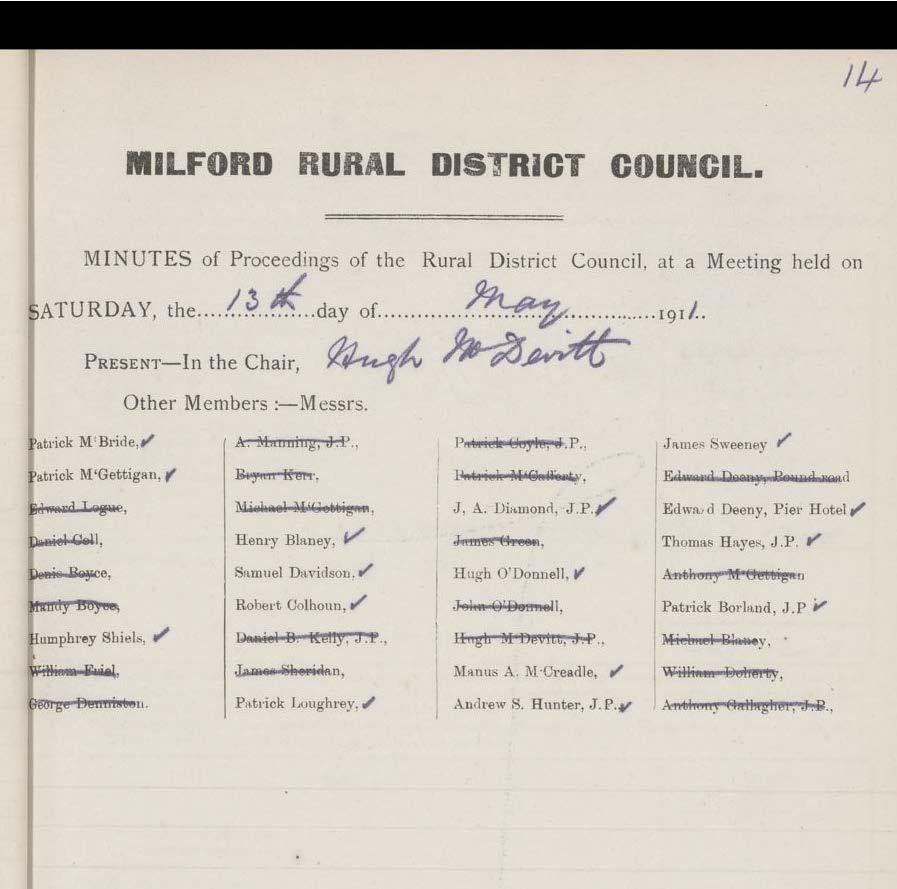 14
MILFORD RURAL DISTRICT COUNCIL.
MINUTES of Proceedings of the Rural District Council, at a Meeting held on
SATURDAY, the....13th....day of....May....1911..
PRESENT—In the Chair, Hugh McDevitt
Other Members :—Messrs.
Patrick M‘Bride, ✓
Patrick M‘Gettigan, ✓
Edward Logue,
Daniel Coll,
Denis Boyce,
Mandy Boyce,
Humphrey Shiels, ✓
William Friel,
George Denniston.
A. Manning, J.P.,
Bryan Kerr,
Michael M‘Gettigan,
Henry Blaney, ✓
Samuel Davidson, ✓
Robert Colhoun, ✓
Daniel B. Kelly, J.P.,
James Sheridan,
Patrick Loughrey, ✓
Patrick Coyle, J.P.,
Patrick M‘Cafferty,
J. A. Diamond, J.P. ✓
James Green,
Hugh O’Donnell, ✓
John O’Donnell,
Hugh M‘Devitt, J.P.,
Manus A. M‘Creadle, ✓
Andrew S. Hunter, J.P., ✓
James Sweeney ✓
Edward Deeny, Pound road
Edward Deeny, Pier Hotel ✓
Thomas Hayes, J.P. ✓
Anthony M‘Gettigan
Patrick Borland, J.P ✓
Michael Blaney,
William Doherty,
Anthony Gallagher, J.P.,